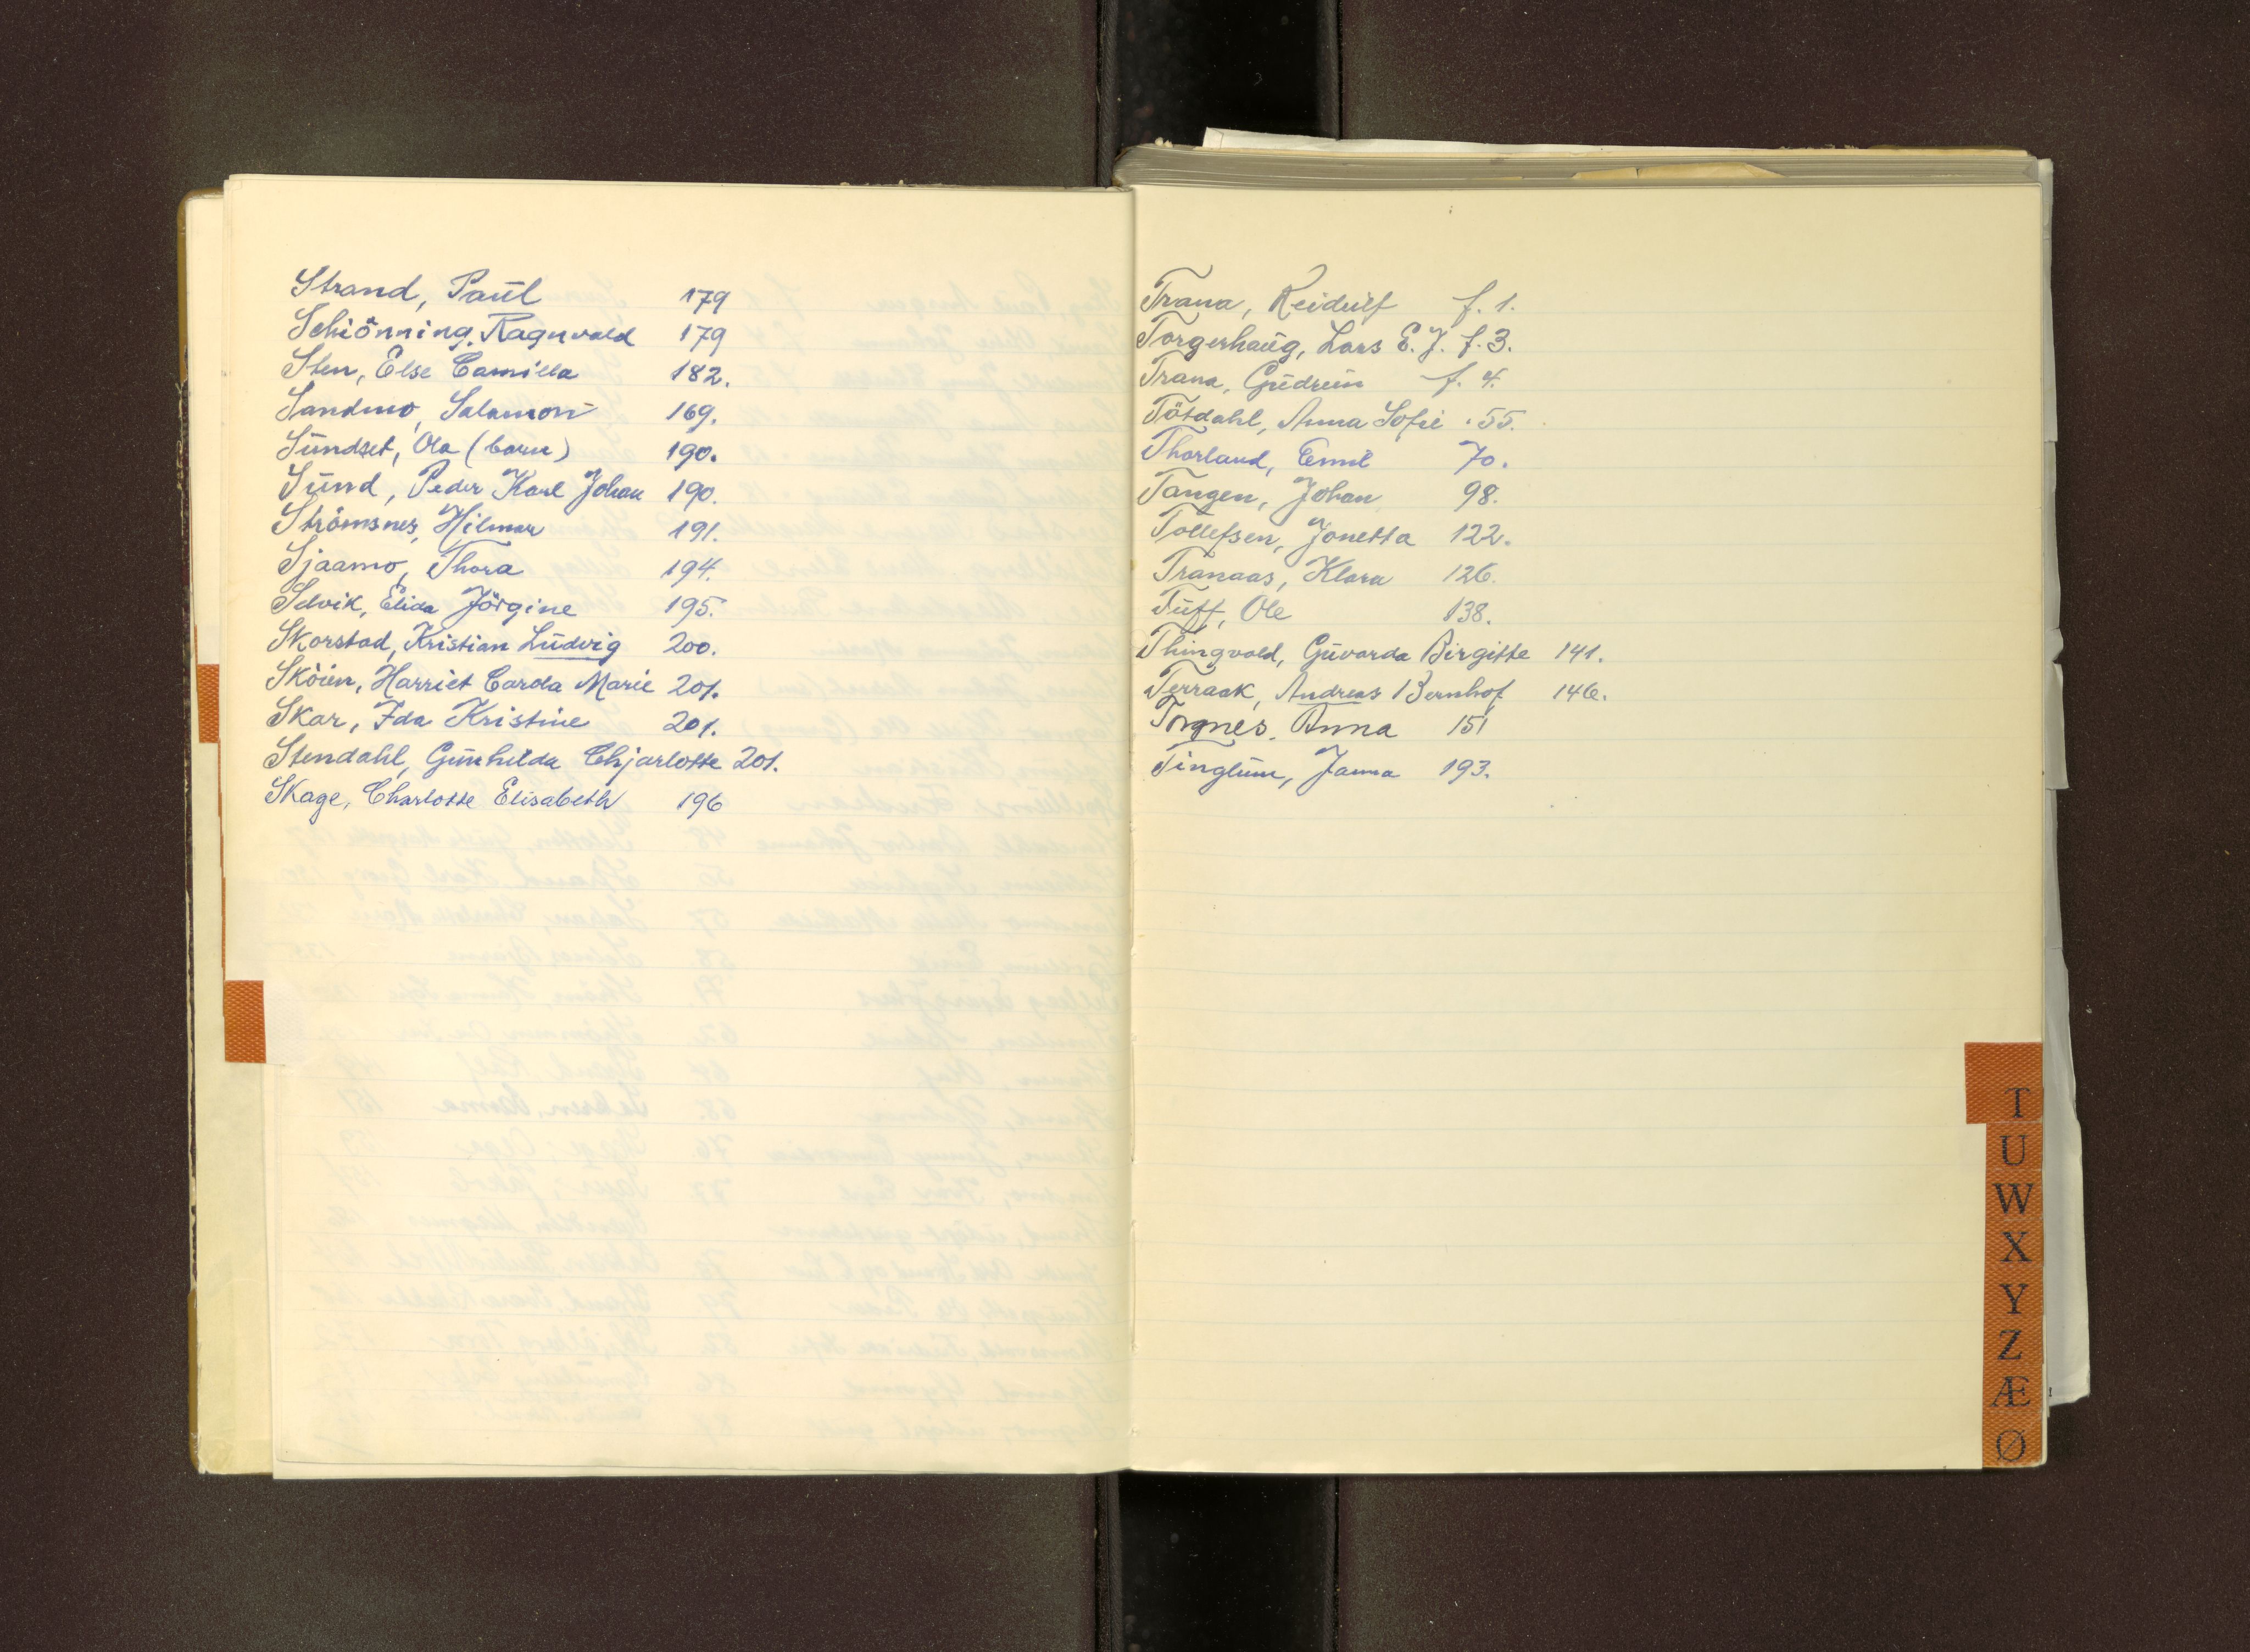 Strand, Paul 179
Schiönning, Ragnvald 179
Sten, Else Camilla 182.
Sandmo, Salamon 169.
Sundset, Ola (barn) 190.
Sund, Peder Karl Johan 190.
Strömsnes, Hilmar 191.
Sjaamo, Thora 194.
Selvik, Elida Jörgine 195.
Skorstad, Kristian Ludvig 200.
Sköien, Harriet Carola Marie 201.
Skar, Ida Kristine 201.
Stendahl, Gunhilda Chjarlotte 201.
Skage, Charlotte Elisabeth 196
Trana, Reidulf f. 1.
Torgerhaug, Lars E. J. f. 3.
Trana, Gudrun f. 4.
Tötdahl, Anna Sofie 55.
Thorland, Emil 70.
Tangen, Johan 98.
Tollefsen, Jonetta 122.
Tranaas, Klara 126.
Tuff, Ole 138.
Thingvold, Guvarda Birgitte 141.
Terraak, Andreas Bernhof 146.
Torgnes, Anna 151
Tinglum, Janna 193.
T
U
W
X
Y
Z
Æ
Ø